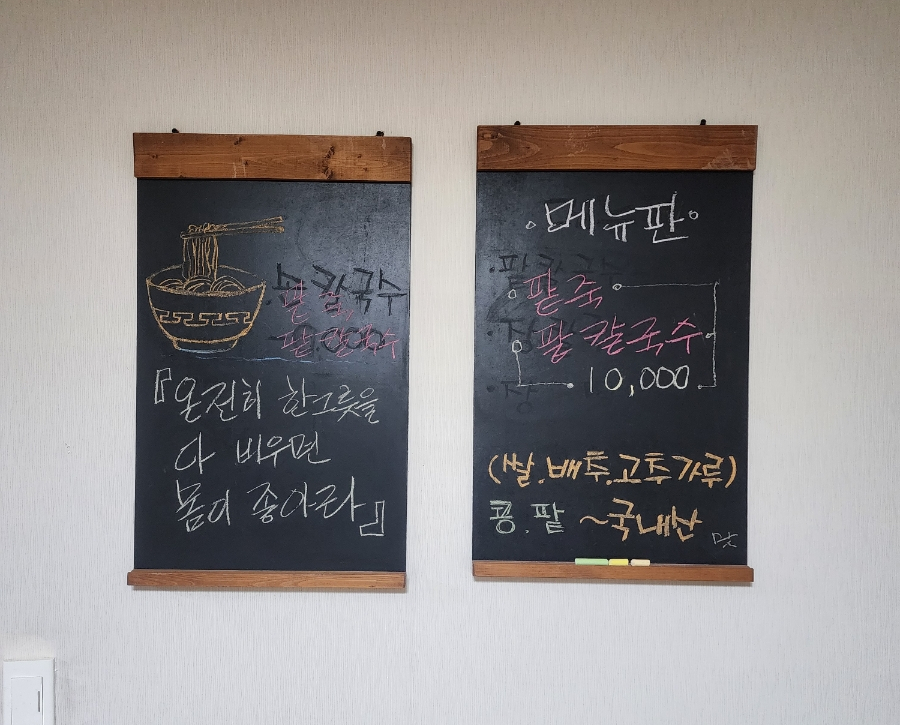 팥칼국수
팥죽
팥칼국수
『온전히 한그릇을
다 비우면
몸이 좋아라』
메뉴판
팥칼국수
팥죽
팥칼국수
10,000
(쌀.배추.고추가루)
콩.팥 ~국내산